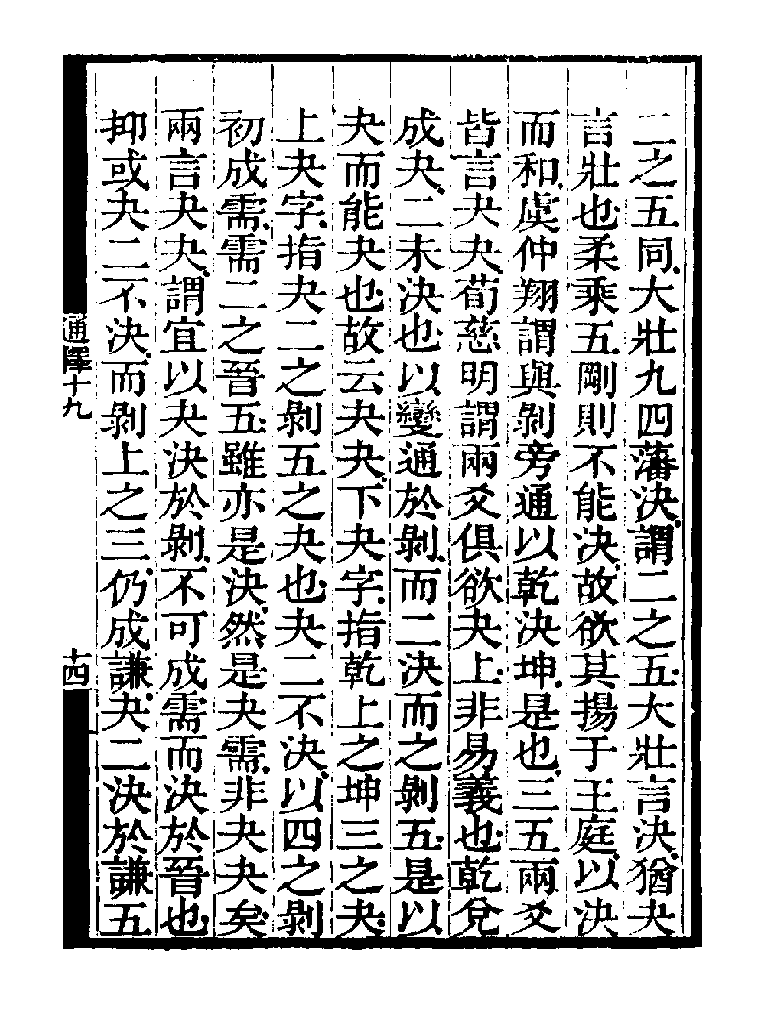 二之五同大壯九四藩決謂二之五大壯言決猶夬
言壯也柔乘五剛則不能決故欲其揚于王庭以決
而和虞仲翔謂與剝旁通以乾決坤是也三五兩爻
皆言夬夬荀慈明謂兩爻俱欲夬上非易義也乾兌
成夬二未決也以變通於剝而二決而之剝五是以
夬而能夬也故云夬夬下夬字指乾上之坤三之夬
上夬字指夬二之剝五之夬也夬二不決以四之剝
初成需需二之晉五雖亦是決然是夬需非夬夬矣
兩言夬夬謂宜以夬決於剝不可成需而決於晉也
抑或夬二不決而剝上之三仍成謙夬二決於謙五
通釋十九
十四